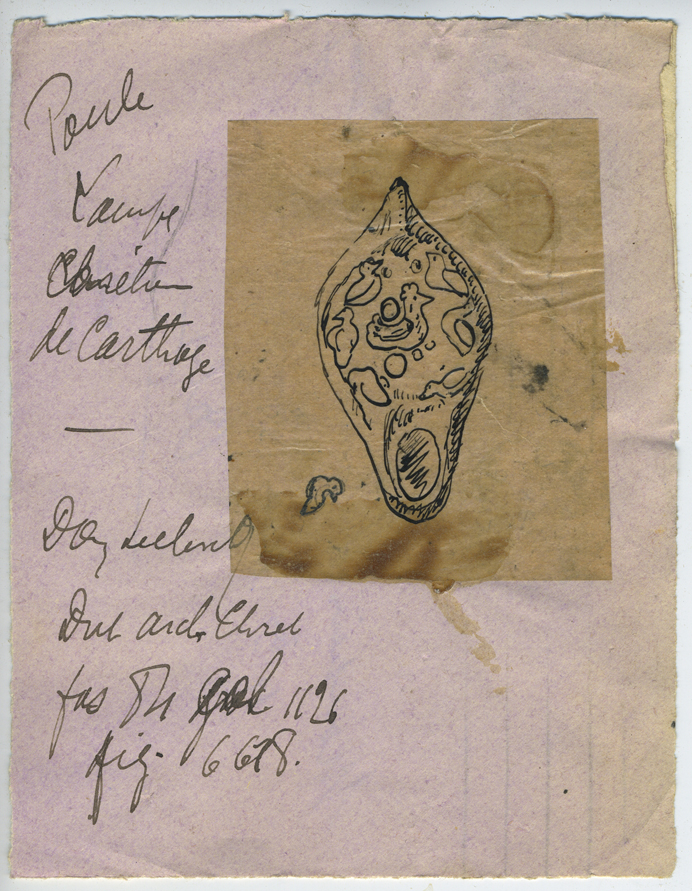 Poule
Lampe
Chrétien
de Carthage
Dom Leclercq
Dict arch. Chret
fas col 1126
fig. 6678.